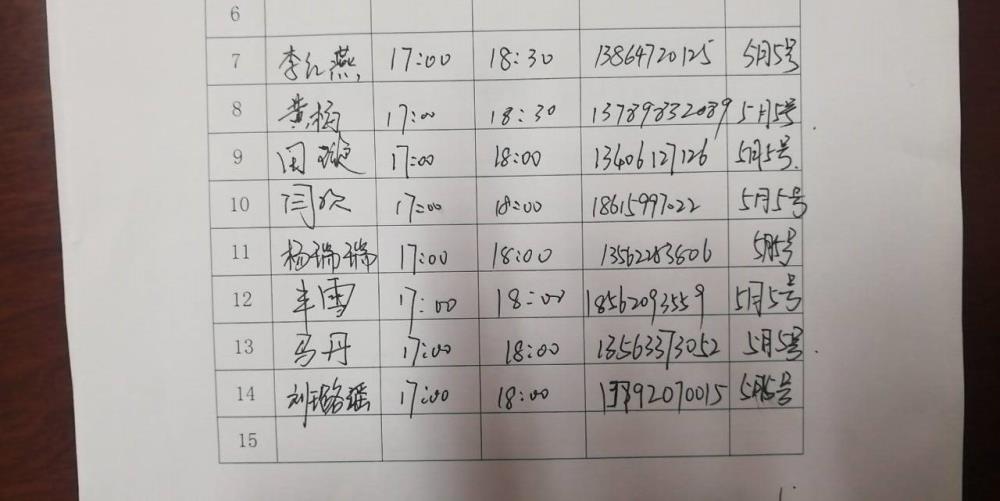 6
7 李红燕 17:00 18:30 13864720125 5月5号
8 黄杨 17:00 18:30 13789832089 5月5号
9 田璇 17:00 18:00 13406127126 5月5号.
10 闫欣 17:00 18:00 18615997022 5月5号
11 杨瑞瑞 17:00 18:00 5月5号
12 丰雪 17:00 18:00 18562093559 5月5号
13 马丹 17:00 18:00 13563373052 5月5号.
14 17:00 18:00 5月5号
15